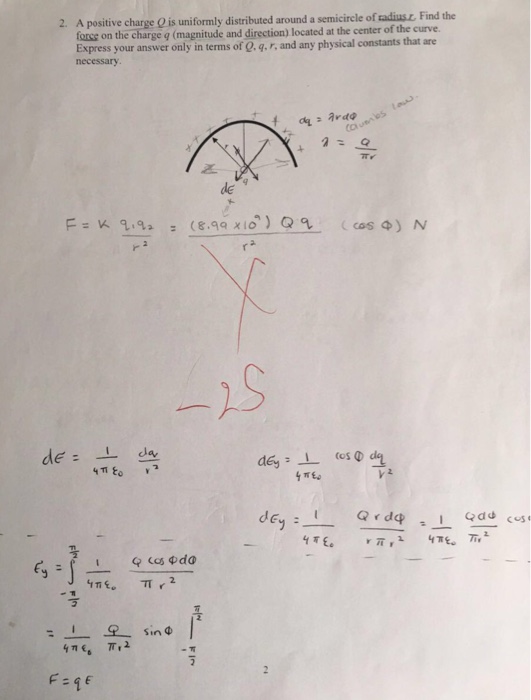 2. A positive charge Q is uniformly distributed around a semicircle of radius r. Find the
force on the charge q (magnitude and direction) located at the center of the curve.
Express your answer only in terms of Q, q, r, and any physical constants that are
necessary.
dq = λrdφ
Coulombs law.
λ = Q/πr
+ + + + + +
q
dE
F = K q₁q₂/r² = (8.99 x10⁹) Qq/r² (cos φ) N
X
-25
dE = 1/4πε₀ dq/r²
dEy = 1/4πε₀ cos φ dq/r²
dEy = 1/4πε₀ Q r dφ/r π r² = 1/4πε₀ Q dφ/πr² cos
Ey = ∫_{-π/2}^{π/2} 1/4πε₀ Q cos φ dφ/π r²
= 1/4πε₀ Q/πr² sin φ |_{-π/2}^{π/2}
F = qE
2